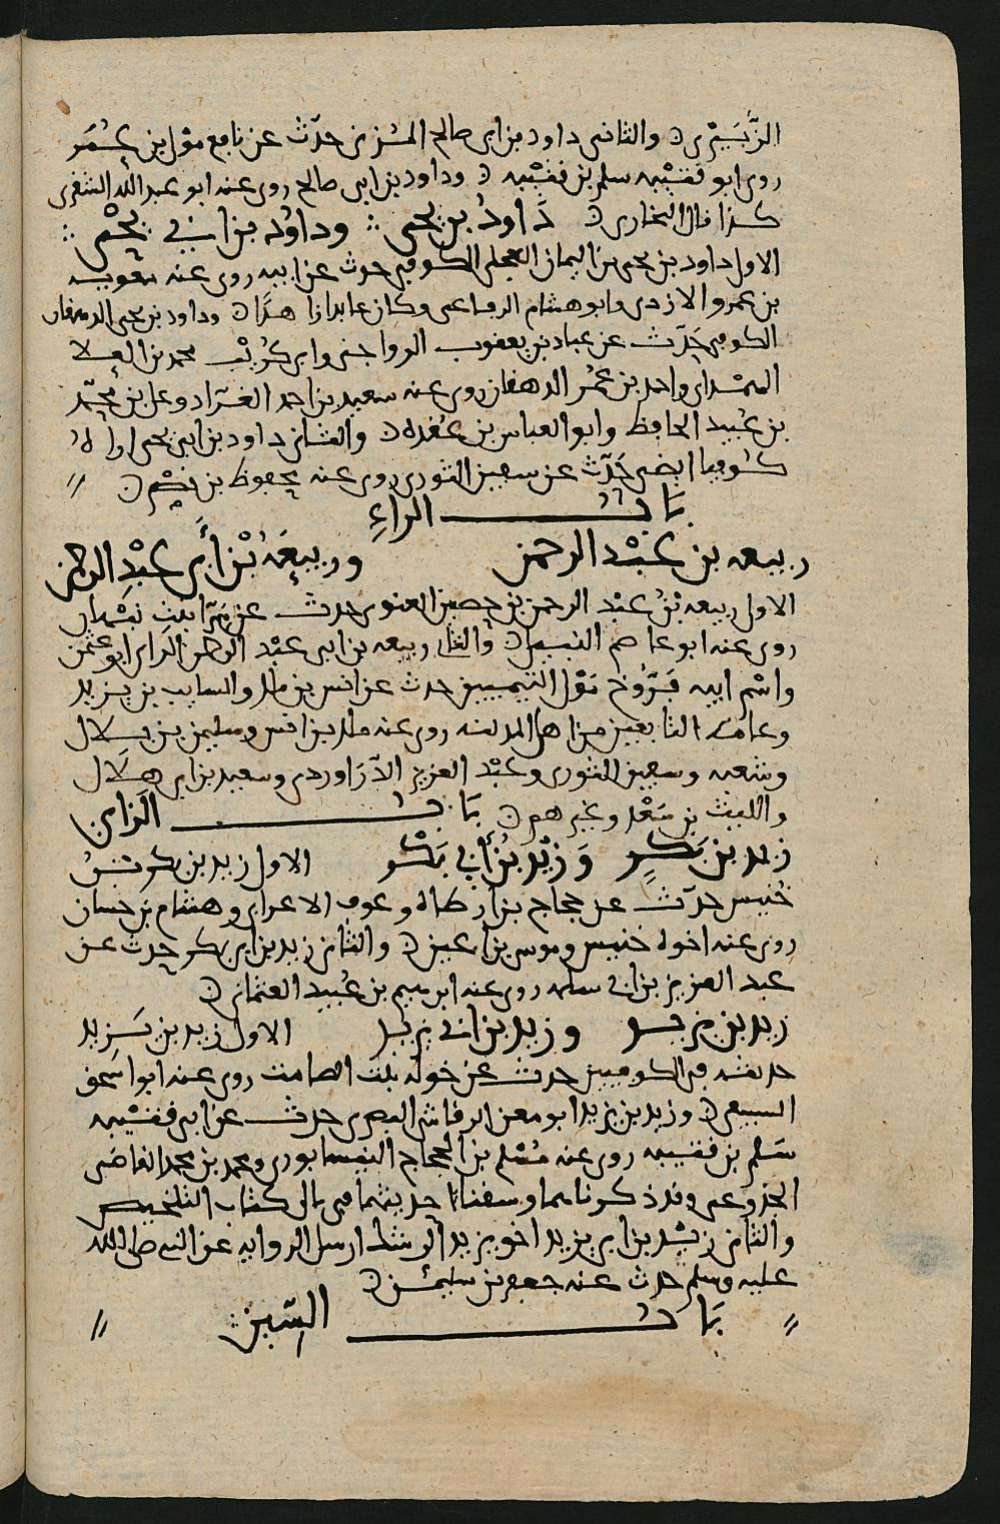 الزبيري والثاني داود بن ابي صالح المزني حدث عن نافع مولى بن عمر
روى ابو قتيبه سلم بن قتيبه وداود بن ابي صالح روى عنه ابو عبد الله الشقري
كذا قال البخاري داود بن يحيى وداود بن ابي يحيى
الاول داود بن يحيى بن اليمان العجلي الكوفي حدث عن ابيه روى عنه يعقوب
بن عمرو الازدي وابو هشام الرفاعي وكان عابدا زاهدا وداود بن يحيى الدهقان
الكوفي حدث عن عباد بن يعقوب الرواجني وابي كريب محمد بن العلا
الهمداني واحمد بن عمر الدهقان روى عنه سعيد بن احمد العراد وعلي بن محمد
بن عبيد الحافظ وابو العباس بن عقده والثاني داود بن ابي يحيى اراه
كوفيا ايضا حدث عن سفين الثوري روى عنه محفوظ بن نصر
باب الراء
ربيعه بن عبد الرحمن وربيعه بن أبي عبد الرحمن
الاول ربيعه بن عبد الرحمن بن حصين الغنوي حدث عن سرا بنت نبهان
روى عنه ابو عاصم النبيل والثاني ربيعه بن ابي عبد الرحمن الراي ابو عثمن
واسم ابيه فروخ مولى التيميين حدث عن انس بن ملك والسايب بن يزيد
وعامة التابعين من اهل المدينه روى عنه ملك بن انس وسليمن بن بلال
وشعبه وسفين الثوري وعبد العزيز الدراوردي وسعيد بن ابي هلال
والليث بن سعد وغيرهم باب الزاي
زيد بن بكر وزيد بن أبي بكر الاول زيد بن بكر بن
خنيس حدث عن حجاج بن ارطاه وعوف الاعرابي وهشام بن حسان
روى عنه اخوه خنيس وموسى بن اعين والثاني زيد بن ابي بكر حدث عن
عبد العزيز بن ابي سلمه روى عنه ابرهيم بن عبيد العثماني
زيد بن يزيد وزيد بن ابي يزيد الاول زيد بن يزيد
حديثه في الكوفيين حدث عن خوله بنت الصامت روى عنه ابو اسحق
السبيعي وزيد بن يزيد ابو معن الرقاشي البصري حدث عن ابي قتيبه
سلم بن قتيبه روى عنه مسلم بن الحجاج النيسابوري ومحمد بن محمد القاضي
الجذوعي وقد ذكرناهما وسقنا حديثهما في كتاب التلخيص
والثاني زيد بن ابي يزيد اخو يزيد الرشك ارسل الروايه عن النبي صلى الله
عليه وسلم حدث عنه جعفر بن سليمن
باب السين